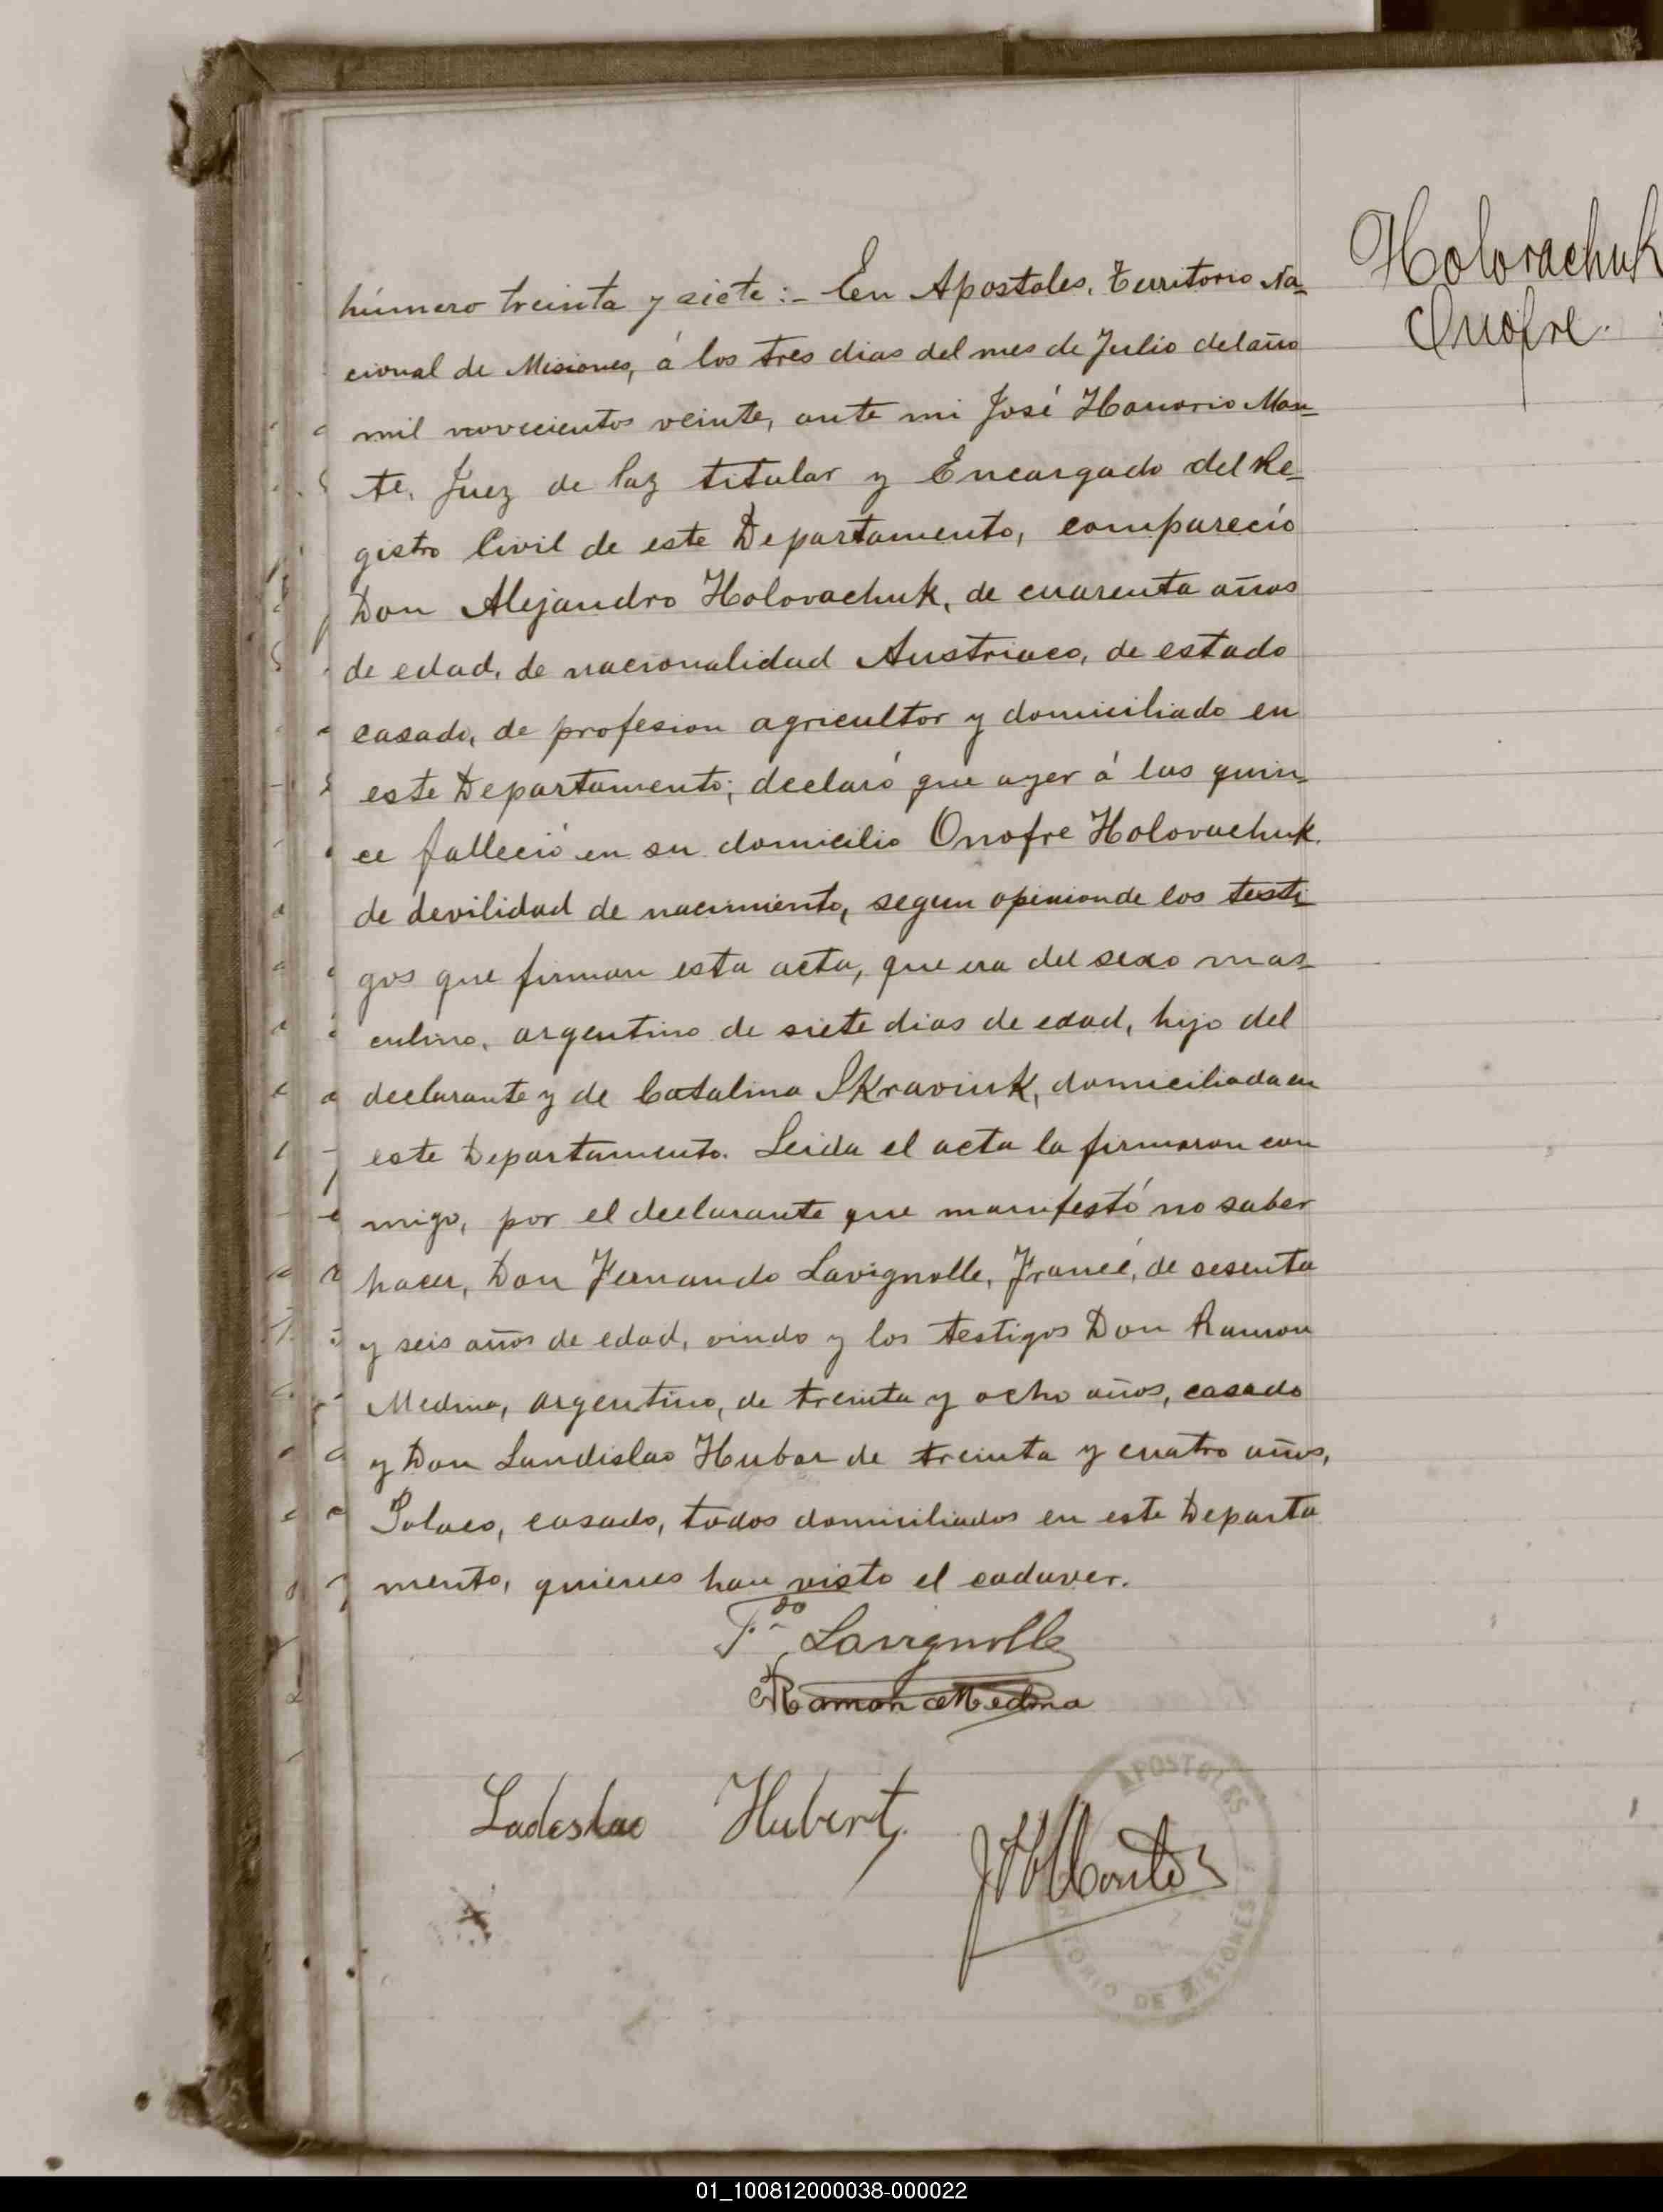 Holovachuk
Onofre.
húmero treinta y siete :- En Apostoles, Territorio Na-
cional de Misiones, á los tres dias del mes de Julio del año
mil novecientos veinte, ante mi José Honorio Mon-
te, Juez de Paz titular y Encargado del Re-
gistro Civil de este Departamento, compareció
Don Alejandro Holovachuk, de cuarenta años
de edad, de nacionalidad Austriaco, de estado
casado, de profesion agricultor y domiciliado en
este Departamento; declaró que ayer á las quin-
ce falleció en su domicilio Onofre Holovachuk.
de devilidad de nacimiento, segun opinion de los testi-
gos que firman esta acta, que era del sexo mas-
culino, argentino de siete dias de edad, hijo del
declarante y de Catalina Skraviuk, domiciliada en
este Departamento. Leida el acta la firmaron con
migo, por el declarante que manifestó no saber
hacer, Don Fernando Lavignolle, Francé, de sesenta
y seis años de edad, viudo y los testigos Don Ramon
Medina, argentino, de treinta y ocho años, casado
y Don Landislao Hubar de treinta y cuatro años,
Polaco, casado, todos domiciliados en este Departa
mento, quienes han visto el cadaver.
F.do Lavignolle
Ramon Medina
Ladeslao Hubert
JHMonte
APOSTOLES
TORIO DE MISIONES
01_100812000038-000022